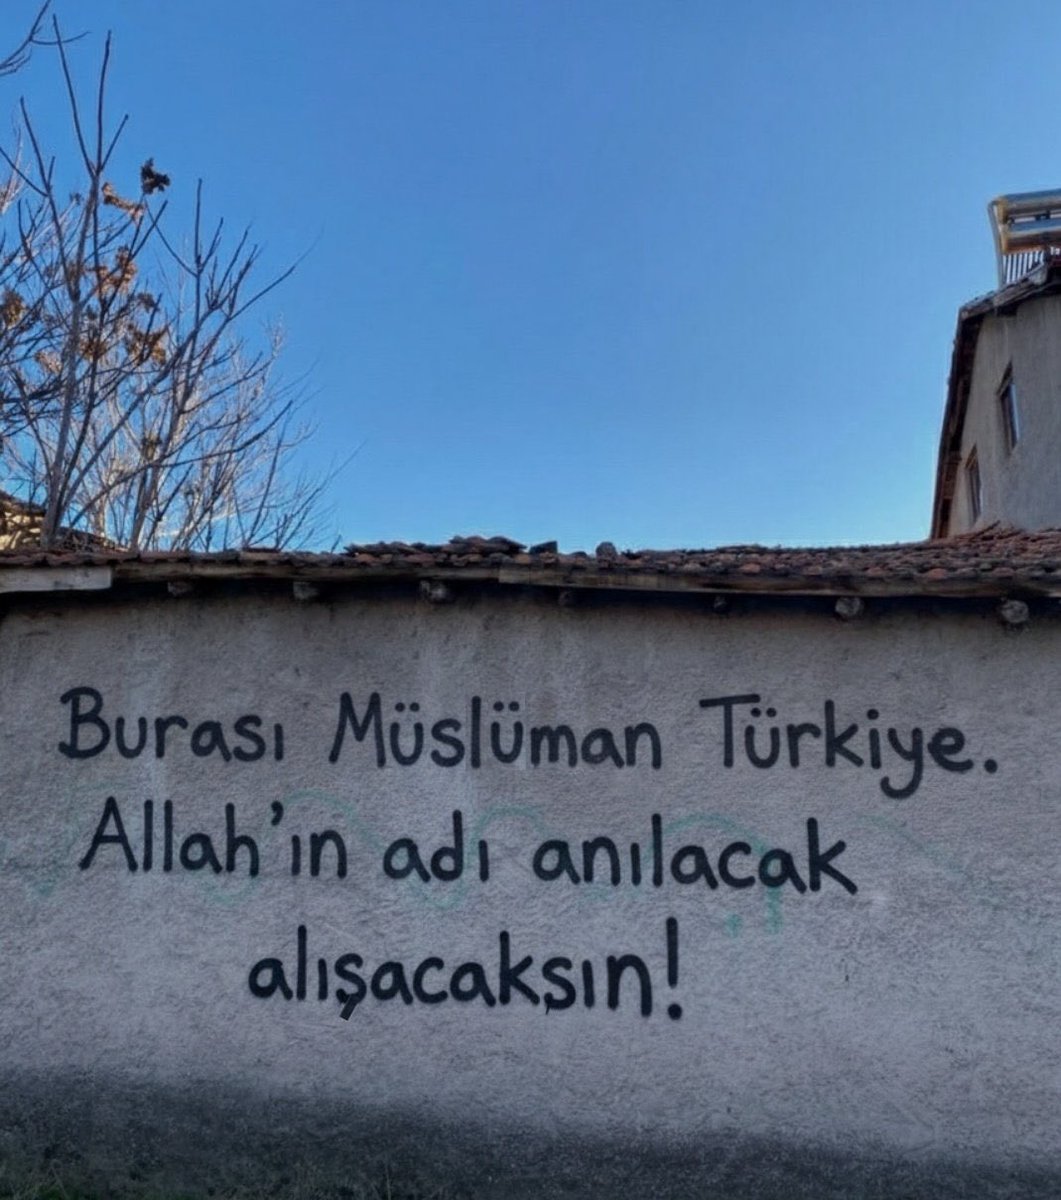 Burası Müslüman Türkiye.
Allah'ın adı anılacak
alışacaksın!